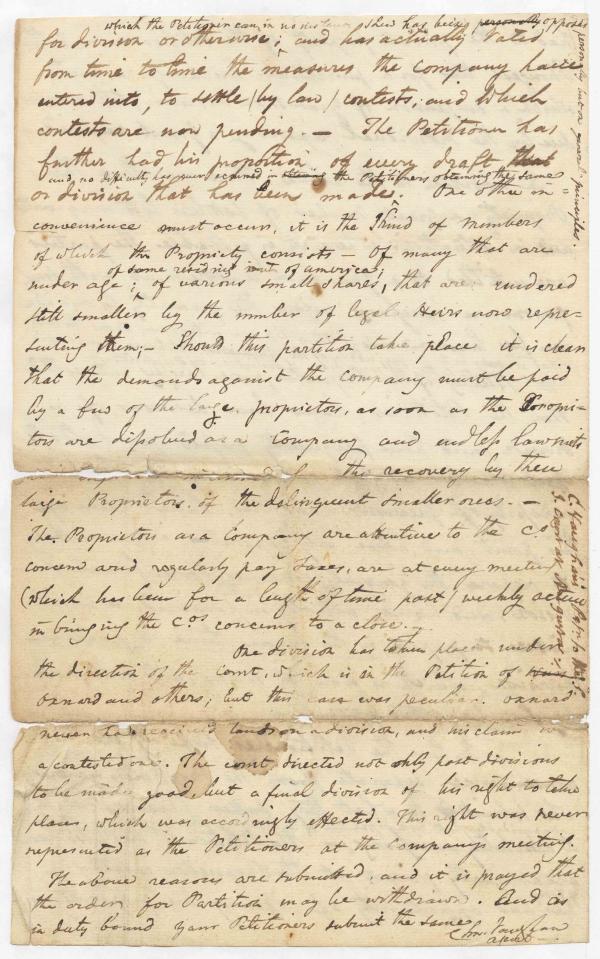 which the Petitioner can in no instance shew has being personally opposed
personally but on general principles.
for division or otherwise; and has actually Voted
from time to time the measures the Company have
entered into, to settle (by law) contests; and which
contests are now pending. — The Petitioner has
further had his proportion of every draft that
and, no difficulty has ever occurred in the Petitioners obtaining the same
or division that has been made. One other in=
convenience must occur, it is the Kind of members
of which the Propriety consists — Of many that are
of some residing out of america;
under age; of various small shares, that are rendered
still smaller by the number of legal Heirs now repre=
senting them;— Should this partition take place it is clear
that the demands against the Company must be paid
by a few of the large proprietors, as soon as the Propri=
tors are dissolved as a Company and endless lawsuits
the recovery by these
large Proprietors of the delinquent smaller ones. —
The Proprietors as a Company are attentive to the Cos
concern and regularly pay Taxes, are at every meeting
(which has been for a length of time past) weekly active
in bringing the Cos concerns to a close. —
One division has taken place under
the direction of the Court, which is in the Petition of
Oxnard and others; but this case was peculiar. Oxnard
never had received lands on a division, and his claim
a contested one. The court directed not only past divisions
to be made good, but a final division of his right to take
place, which was accordingly effected. This right was never
represented as the Petitioners at the Company's meeting.
The above reasons are submitted, and it is prayed that
the order for Partition may be withdrawn. And as
in duty bound your Petitioners submit the same
Vaughan
agent —
C. Vaughans
Augusta